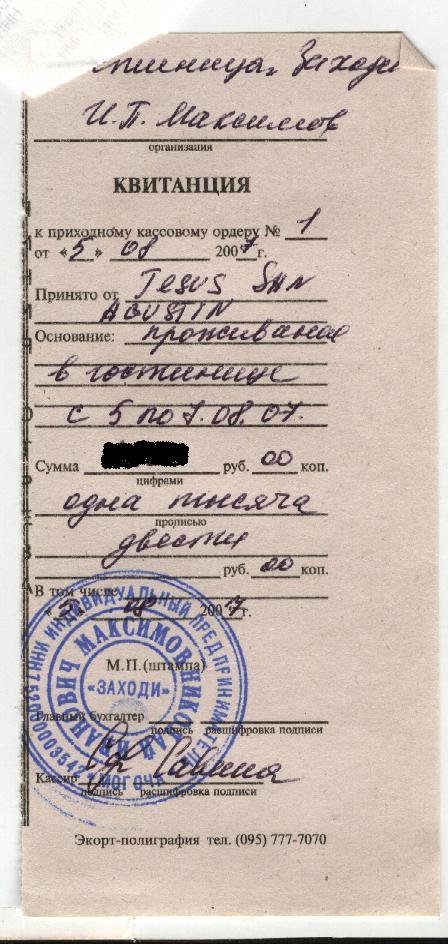 Заходи
И.П. Максимов
организация
КВИТАНЦИЯ
к приходному кассовому ордеру № 1
от «5» 08 2007 г.
Принято от JESUS SAN
AGUSTIN
Основание: проживание
в гостинице
с 5 по 7.08.07.
Сумма руб. 00 коп.
цифрами
одна тысяча
прописью
двести
руб. 00 коп.
В том числе
08 2007 г.
М.П. (штампа)
«ЗАХОДИ»
ИНДИВИДУАЛЬНЫЙ ПРЕДПРИНИМАТЕЛЬ
МАКСИМОВ НИКОЛАЙ ИВАНОВИЧ
МОГОЧА
Главный бухгалтер
подпись расшифровка подписи
Кассир
подпись расшифровка подписи
Экорт-полиграфия тел. (095) 777-7070